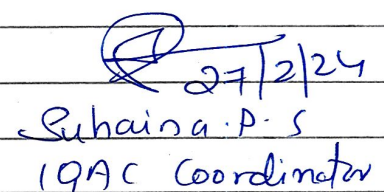 27/2/24
Suhaina.P.S
IQAC Coordinator